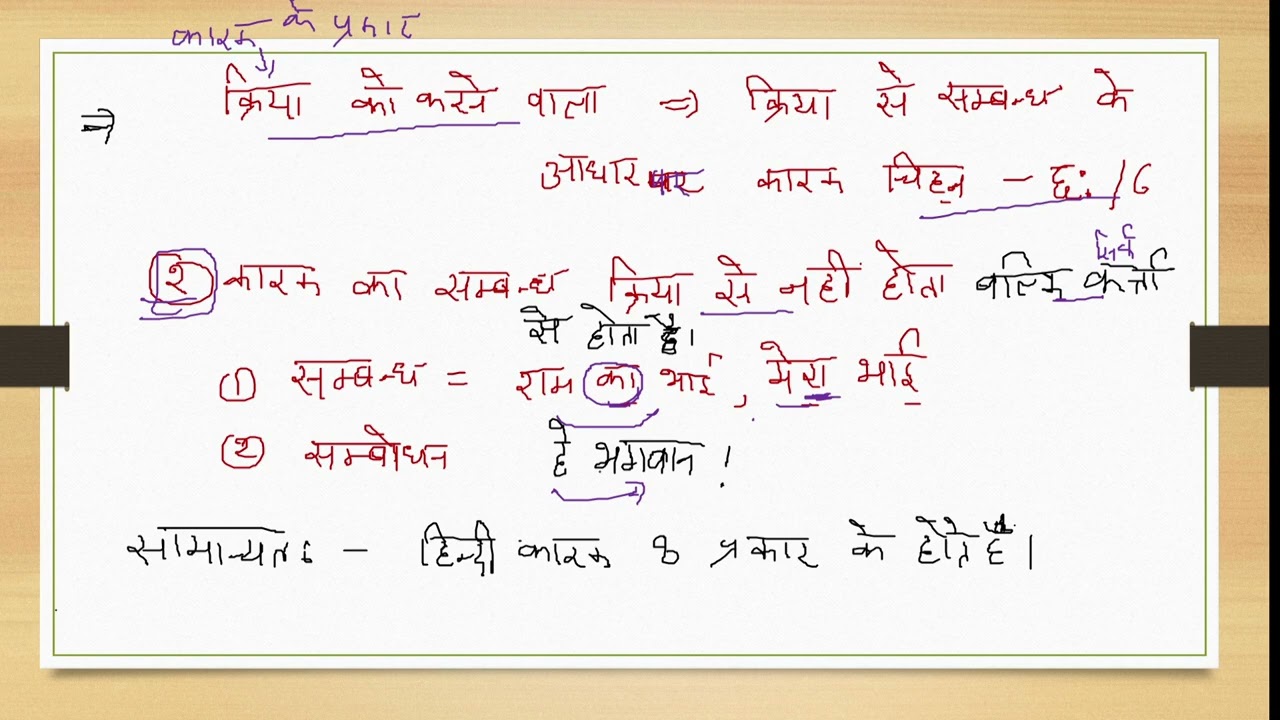 कारक के प्रकार
⇒ क्रिया को करने वाला ⇒ क्रिया से सम्बन्ध के
आधार पर कारक चिहन - छः / 6
२ कारक का सम्बन्ध क्रिया से नही होता बल्कि सिर्फ कर्त्ता
से होता है।
① सम्बन्ध = राम का भाई, मेरा भाई
② सम्बोधन हे भगवान !
सामान्यतः - हिन्दी कारक 8 प्रकार के होते है।